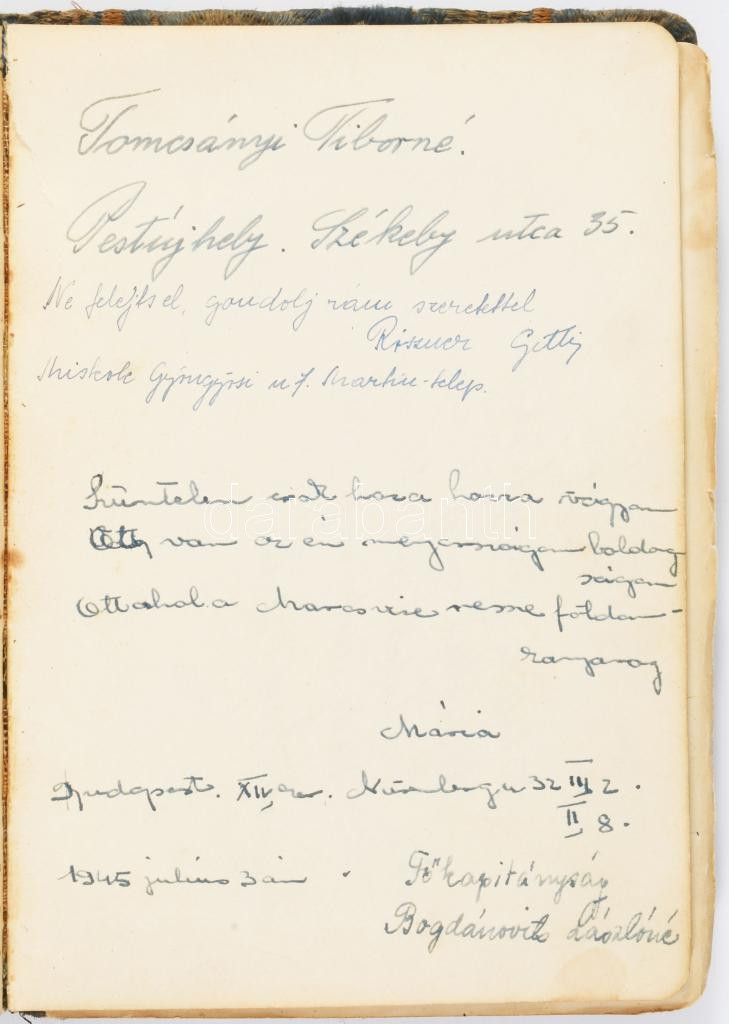 Tomcsányi Tiborné.
Pestújhely. Székely utca 35.
Ne felejts el, gondolj rám szeretettel
Riszner Getti
Miskolc Gyöngyösi u 7. Martin-telep.
Szüntelen csak haza haza vágyom
Ott van az én magyarságom boldog
ságom
Ott ahol a Maros vize messe földön
kanyarog
Mária
Budapest. XIV ker. Nürnberg u 32 III 2.
II 8.
1945 július 3 án
Főkapitányság
Bogdánovits Lászlóné
darabanth